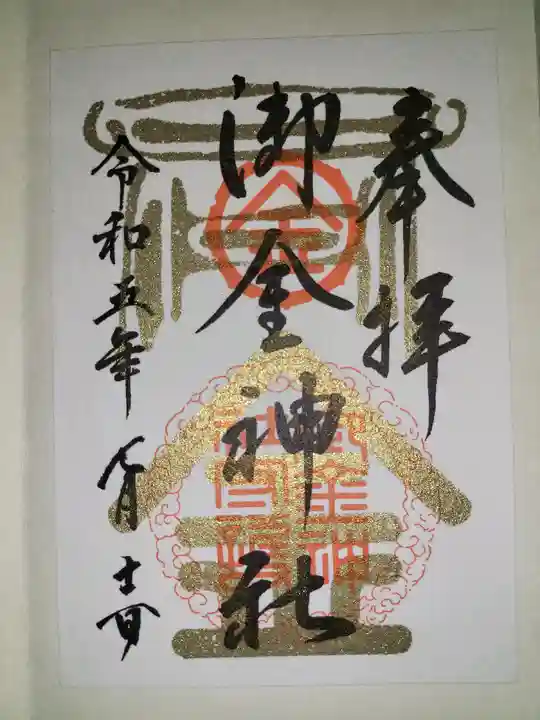 奉拝
御金神社
令和五年八月十一日